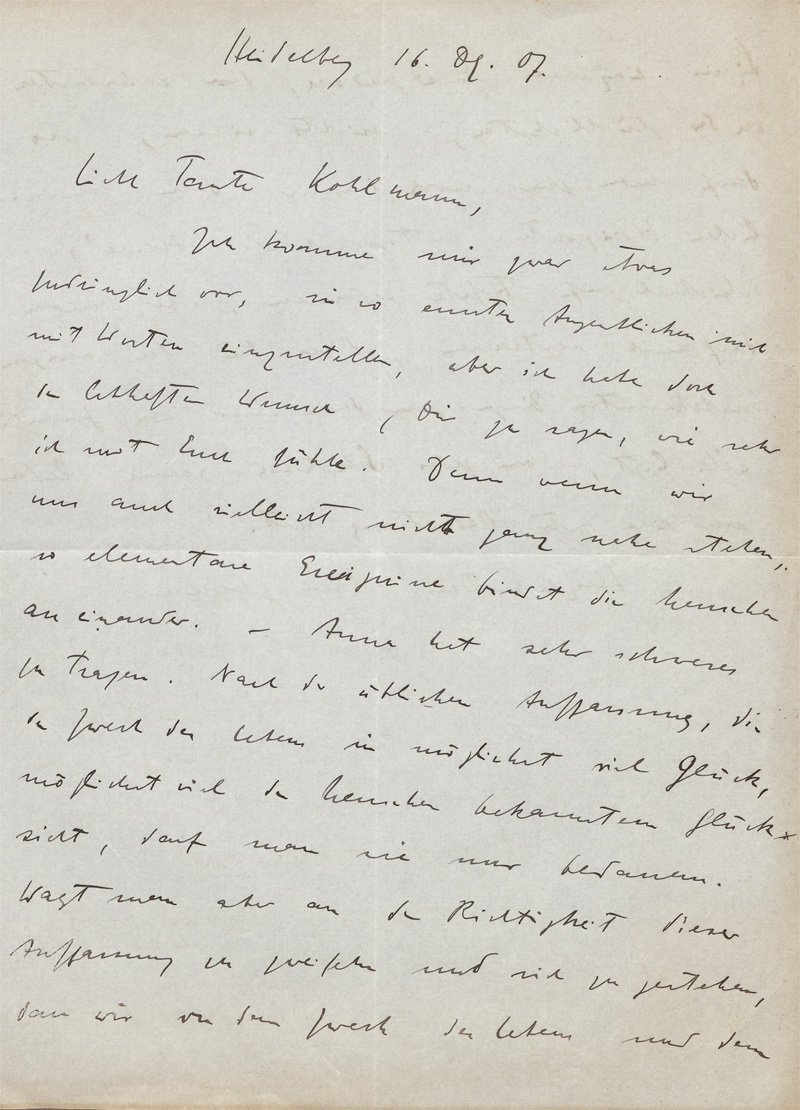 Heidelberg 16. Dz. 07.
Liebe Tante Kohlmann,
Ich komme mir zwar etwas
zudringlich vor, in so ernsten Augenblicken mich
mit Worten einzustellen, aber ich habe doch
den lebhaften Wunsch, Dir zu sagen, wie sehr
ich mit Euch fühle. Denn wenn wir
uns auch vielleicht nicht ganz nahe stehen,
so elementare Ereignisse bindet die Menschen
an einander. – Anna hat sehr schweres
zu tragen. Nach der üblichen Auffassung, die
den Zweck des Lebens in möglichst viel Glück,
möglichst viel den Menschen bekanntem Glück
sieht, darf man sie nur bedauern.
Wagt man aber an der Richtigkeit dieser
Auffassung zu zweifeln und sich zu gestehen,
dass wir von dem Zweck des Lebens und dem